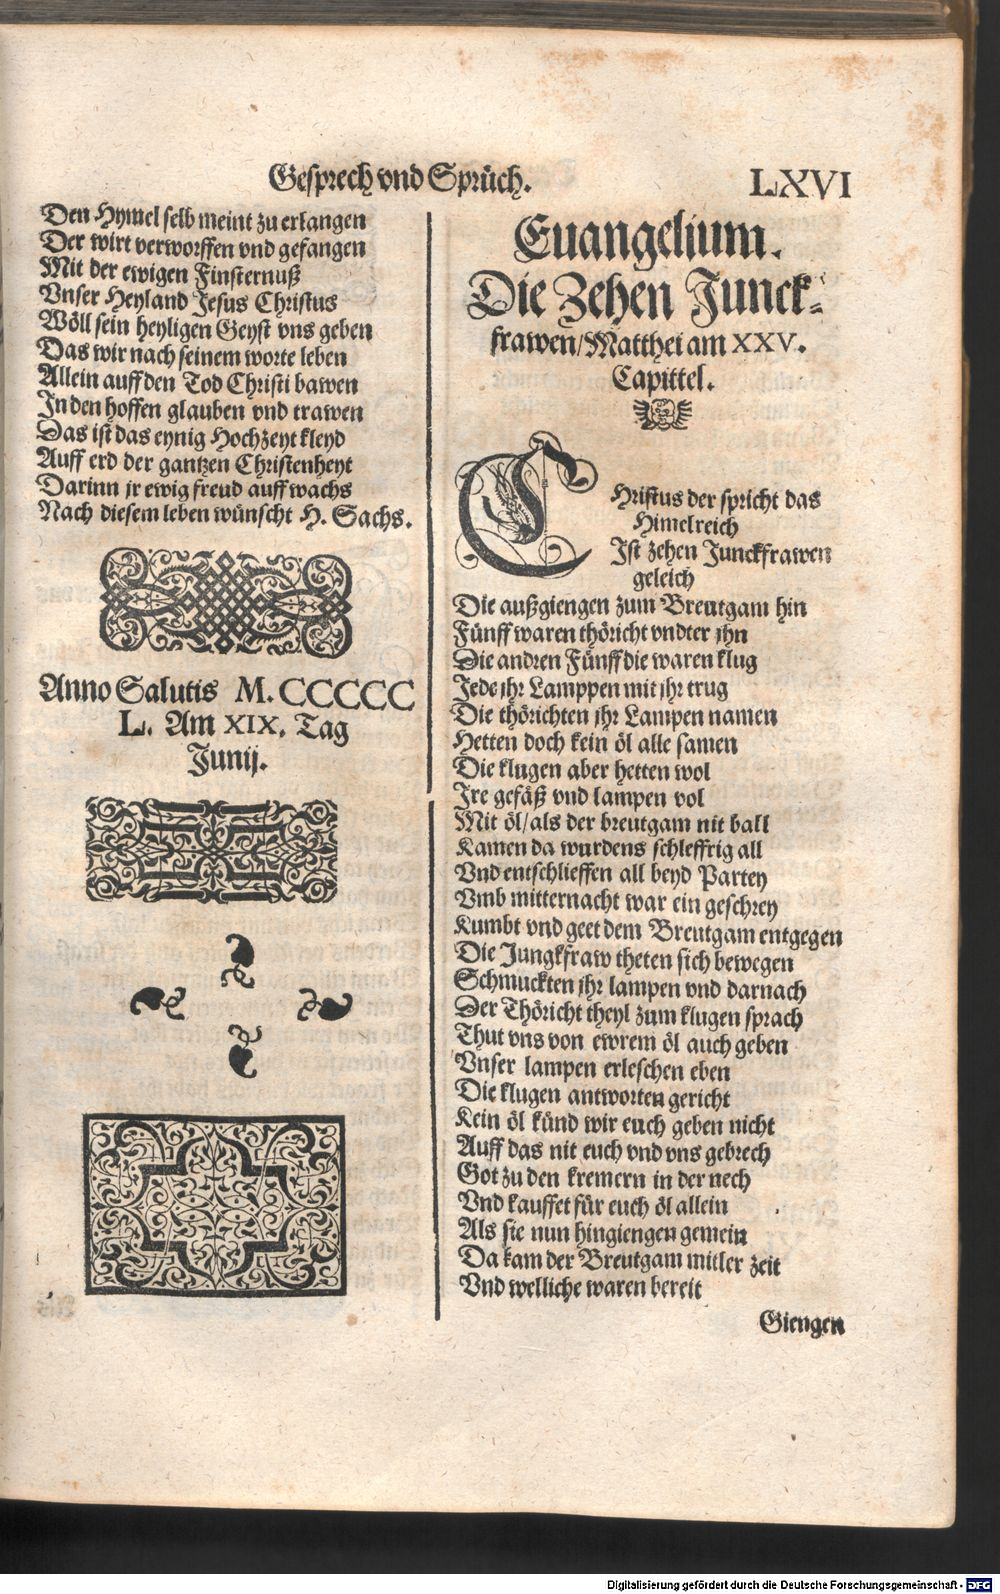 Gesprech vnd Sprüch. LXVI
Den Hymel selb meint zu erlangen
Der wirt verworffen vnd gefangen
Mit der ewigen Finsternuß
Vnser Heyland Jesus Christus
Wöll sein heyligen Geyst vns geben
Das wir nach seinem worte leben
Allein auff den Tod Christi bawen
In den hoffen glauben vnd trawen
Das ist das eynig Hochzeyt kleyd
Auff erd der gantzen Christenheyt
Darinn jr ewig freud auff wachs
Nach diesem leben wünscht H. Sachs.
Anno Salutis M. CCCCC
L. Am XIX. Tag
Junij.
Euangelium.
Die Zehen Junck-
frawen/Matthei am XXV.
Capittel.
CHristus der spricht das
Himelreich
Ist zehen Junckfrawen
geleich
Die außgiengen zum Breutgam hin
Fünff waren thöricht vndter jhn
Die andren Fünff die waren klug
Jede jhr Lamppen mit jhr trug
Die thörichten jhr Lampen namen
Hetten doch kein öl alle samen
Die klugen aber hetten wol
Ire gefäß vnd lampen vol
Mit öl/als der breutgam nit ball
Kamen da wurdens schleffrig all
Vnd entschlieffen all beyd Partey
Vmb mitternacht war ein geschrey
Kumbt vnd geet dem Breutgam entgegen
Die Jungkfraw theten sich bewegen
Schmuckten jhr lampen vnd darnach
Der Thöricht theyl zum klugen sprach
Thut vns von ewrem öl auch geben
Vnser lampen erleschen eben
Die klugen antworten gericht
Kein öl künd wir euch geben nicht
Auff das nit euch vnd vns gebrech
Got zu den kremern in der nech
Vnd kauffet für euch öl allein
Als sie nun hingiengen gemein
Da kam der Breutgam mitler zeit
Vnd welliche waren bereit
Giengen
Digitalisierung gefördert durch die Deutsche Forschungsgemeinschaft - DFG